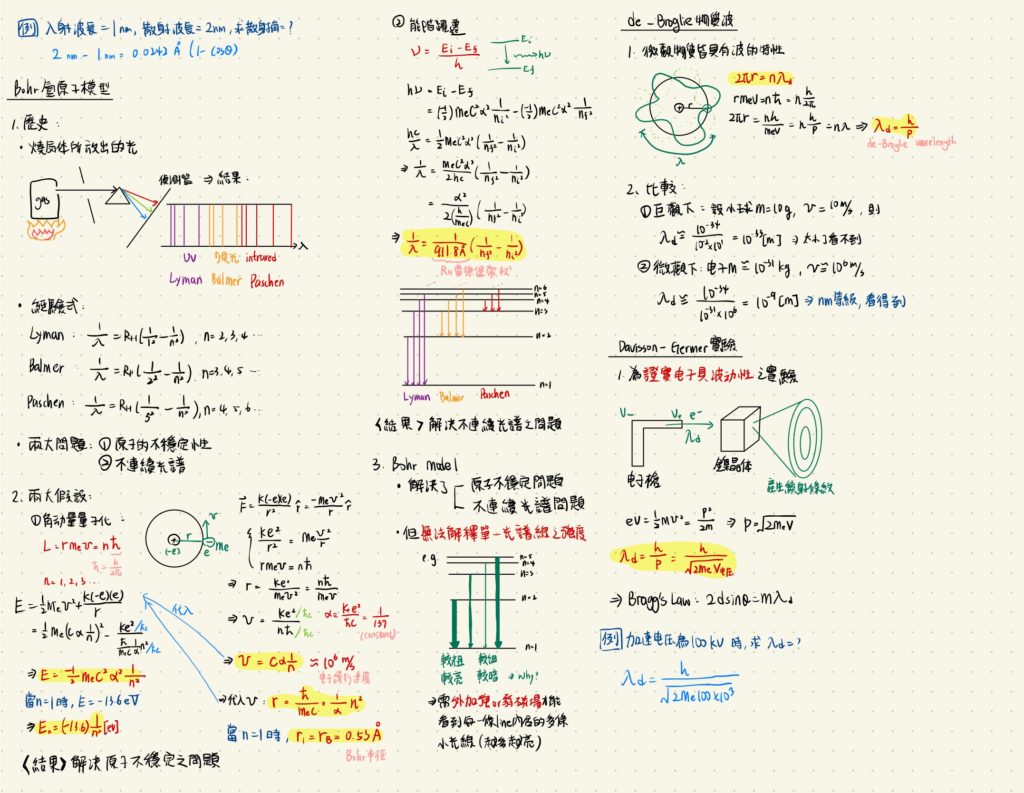 例 入射波長=1nm, 散射波長=2nm, 求散射角=?
2nm - 1nm = 0.0242 Å (1-cosθ)
Bohr 氫原子模型
1. 歷史:
• 燒氣体所放出的光
gas
偵測器 ⇒ 結果:
λ
UV 可見光 infrared
Lyman Balmer Paschen
• 經驗式:
Lyman: 1/λ = RH(1/1² - 1/n²), n=2,3,4...
Balmer: 1/λ = RH(1/2² - 1/n²), n=3,4,5...
Paschen: 1/λ = RH(1/3² - 1/n²), n=4,5,6...
• 兩大問題: ① 原子的不穩定性
② 不連續光譜
2. 兩大假設:
① 角動量量子化:
L = rmev = nħ
ħ = h/2π
n = 1, 2, 3...
(-e) r v e me
E = 1/2 mev² + k(-e)(e)/r
= 1/2 me(cα 1/n)² - ke²/ħc / ħ/mec 1/α n²/ħc
⇒ E = -1/2 mec²α² 1/n²
當n=1時, E = -13.6eV
⇒ En = (-13.6) 1/n² [eV]
〈結果〉解決原子不穩定之問題
F = k(-e)(e)/r² r̂ = -mev²/r r̂
{ ke²/r² = mev²/r
rmev = nħ
⇒ r = ke²/mev² = nħ/mev
⇒ v = ke²/ħc / nħ/ħc
α = ke²/ħc = 1/137
(constant)
代入
⇒ v = cα 1/n ≈ 10⁶ m/s
电子繞行速度
⇒ 代入v: r = ħ/mec × 1/α n²
當n=1時, r1 = rB = 0.53 Å
Bohr半徑
② 能階躍遷
ν = Ei-Ef/h
Ei hν Ef
hν = Ei - Ef
= (-1/2) mec²α² 1/ni² - (-1/2) mec²α² 1/nf²
hc/λ = 1/2 mec²α² (1/nf² - 1/ni²)
⇒ 1/λ = mec²α²/2hc (1/nf² - 1/ni²)
= α²/2(h/mec) (1/nf² - 1/ni²)
⇒ 1/λ = 1/911.8Å (1/nf² - 1/ni²)
RH 雷德堡常數
n=6
n=5
n=4
n=3
n=2
n=1
Lyman Balmer Paschen
〈結果〉解決不連續光譜之問題
3. Bohr model
• 解決了 原子不穩定問題
不連續光譜問題
• 但無法解釋單一光譜線之強度
e.g
n=5
n=4
n=3
n=2
n=1
較粗 較細
較亮 較暗 ⇒ why?
⇒ 需外加電or磁場才能
看到每一條line內含的多條
小光線 (越多越亮)
de-Broglie 物質波
1. 微觀物質皆具有波的特性
r
λ
2πr = nλ
rmev = nħ = n h/2π
2πr = nh/mev = n h/p = nλ ⇒ λd = h/p
de-Broglie wavelength
2. 比較:
① 巨觀下: 設小球m=10g, v=10m/s, 則
λd ≅ 10⁻³⁴/10⁻²×10¹ = 10⁻³³[m] ⇒ 太小了看不到
② 微觀下: 电子m≅10⁻³¹kg, v≅10⁶m/s
λd ≅ 10⁻³⁴/10⁻³¹×10⁶ = 10⁻⁹[m] ⇒ nm等級, 看得到
Davisson-Germer 實驗
1. 為證實电子具波动性之實驗
V- V+ e-
λd
电子槍
鎳晶体
產生繞射條紋
eV = 1/2 mv² = p²/2m ⇒ p = √2meV
λd = h/p = h/√2meV电压
⇒ Bragg's Law: 2dsinθ = mλd
例 加速电压為100kV時, 求 λd=?
λd = h/√2me100×10³